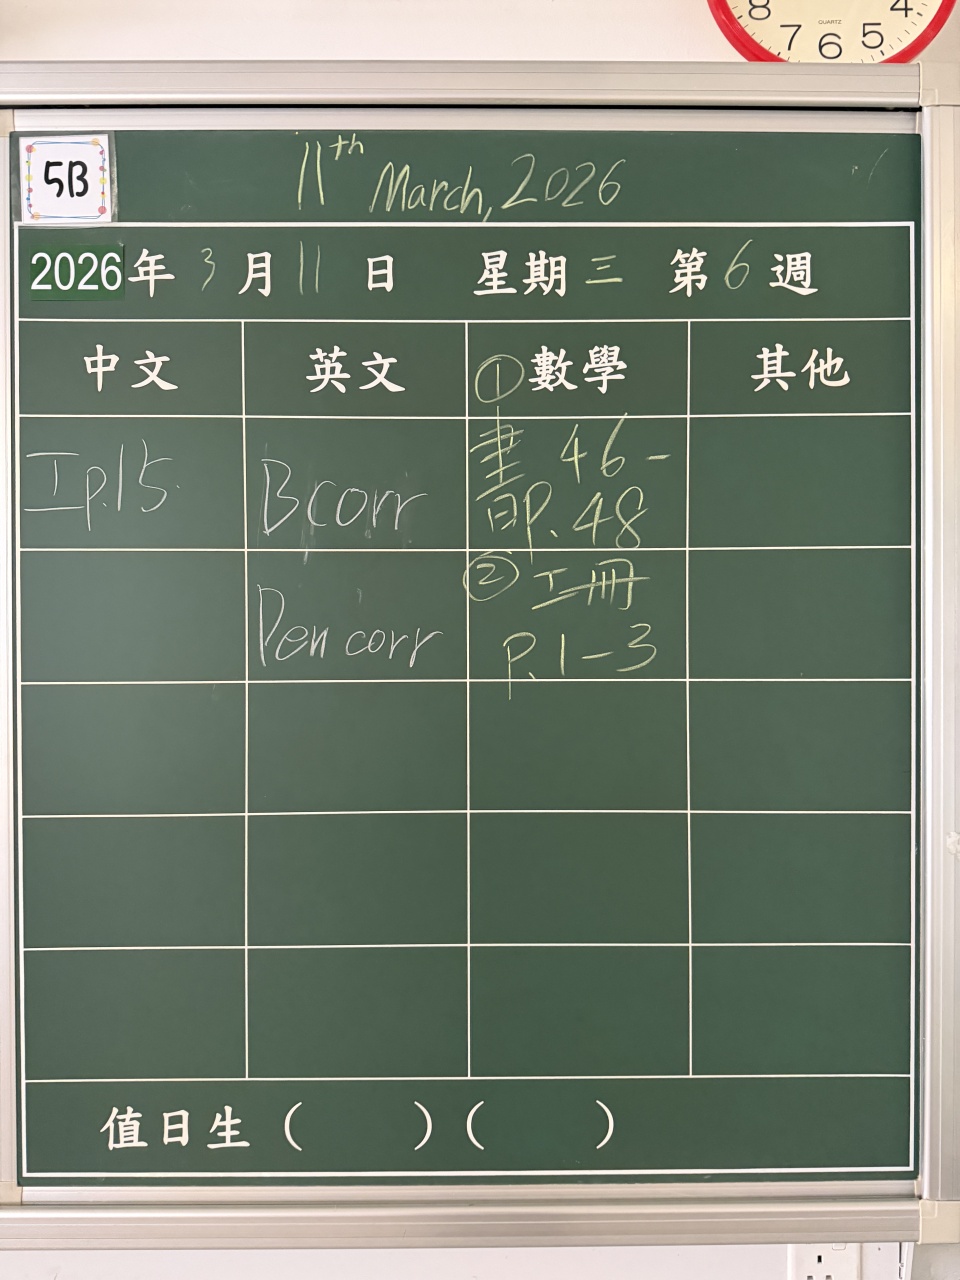 8 7 6 5 4
QUARTZ
5B
11th March, 2026
2026年 3 月 11 日 星期 三 第 6 週
中文 英文 ①數學 其他
工p.15. B corr 書 46-
P.48
Pen corr ② 工冊
P.1-3
值日生 ( ) ( )